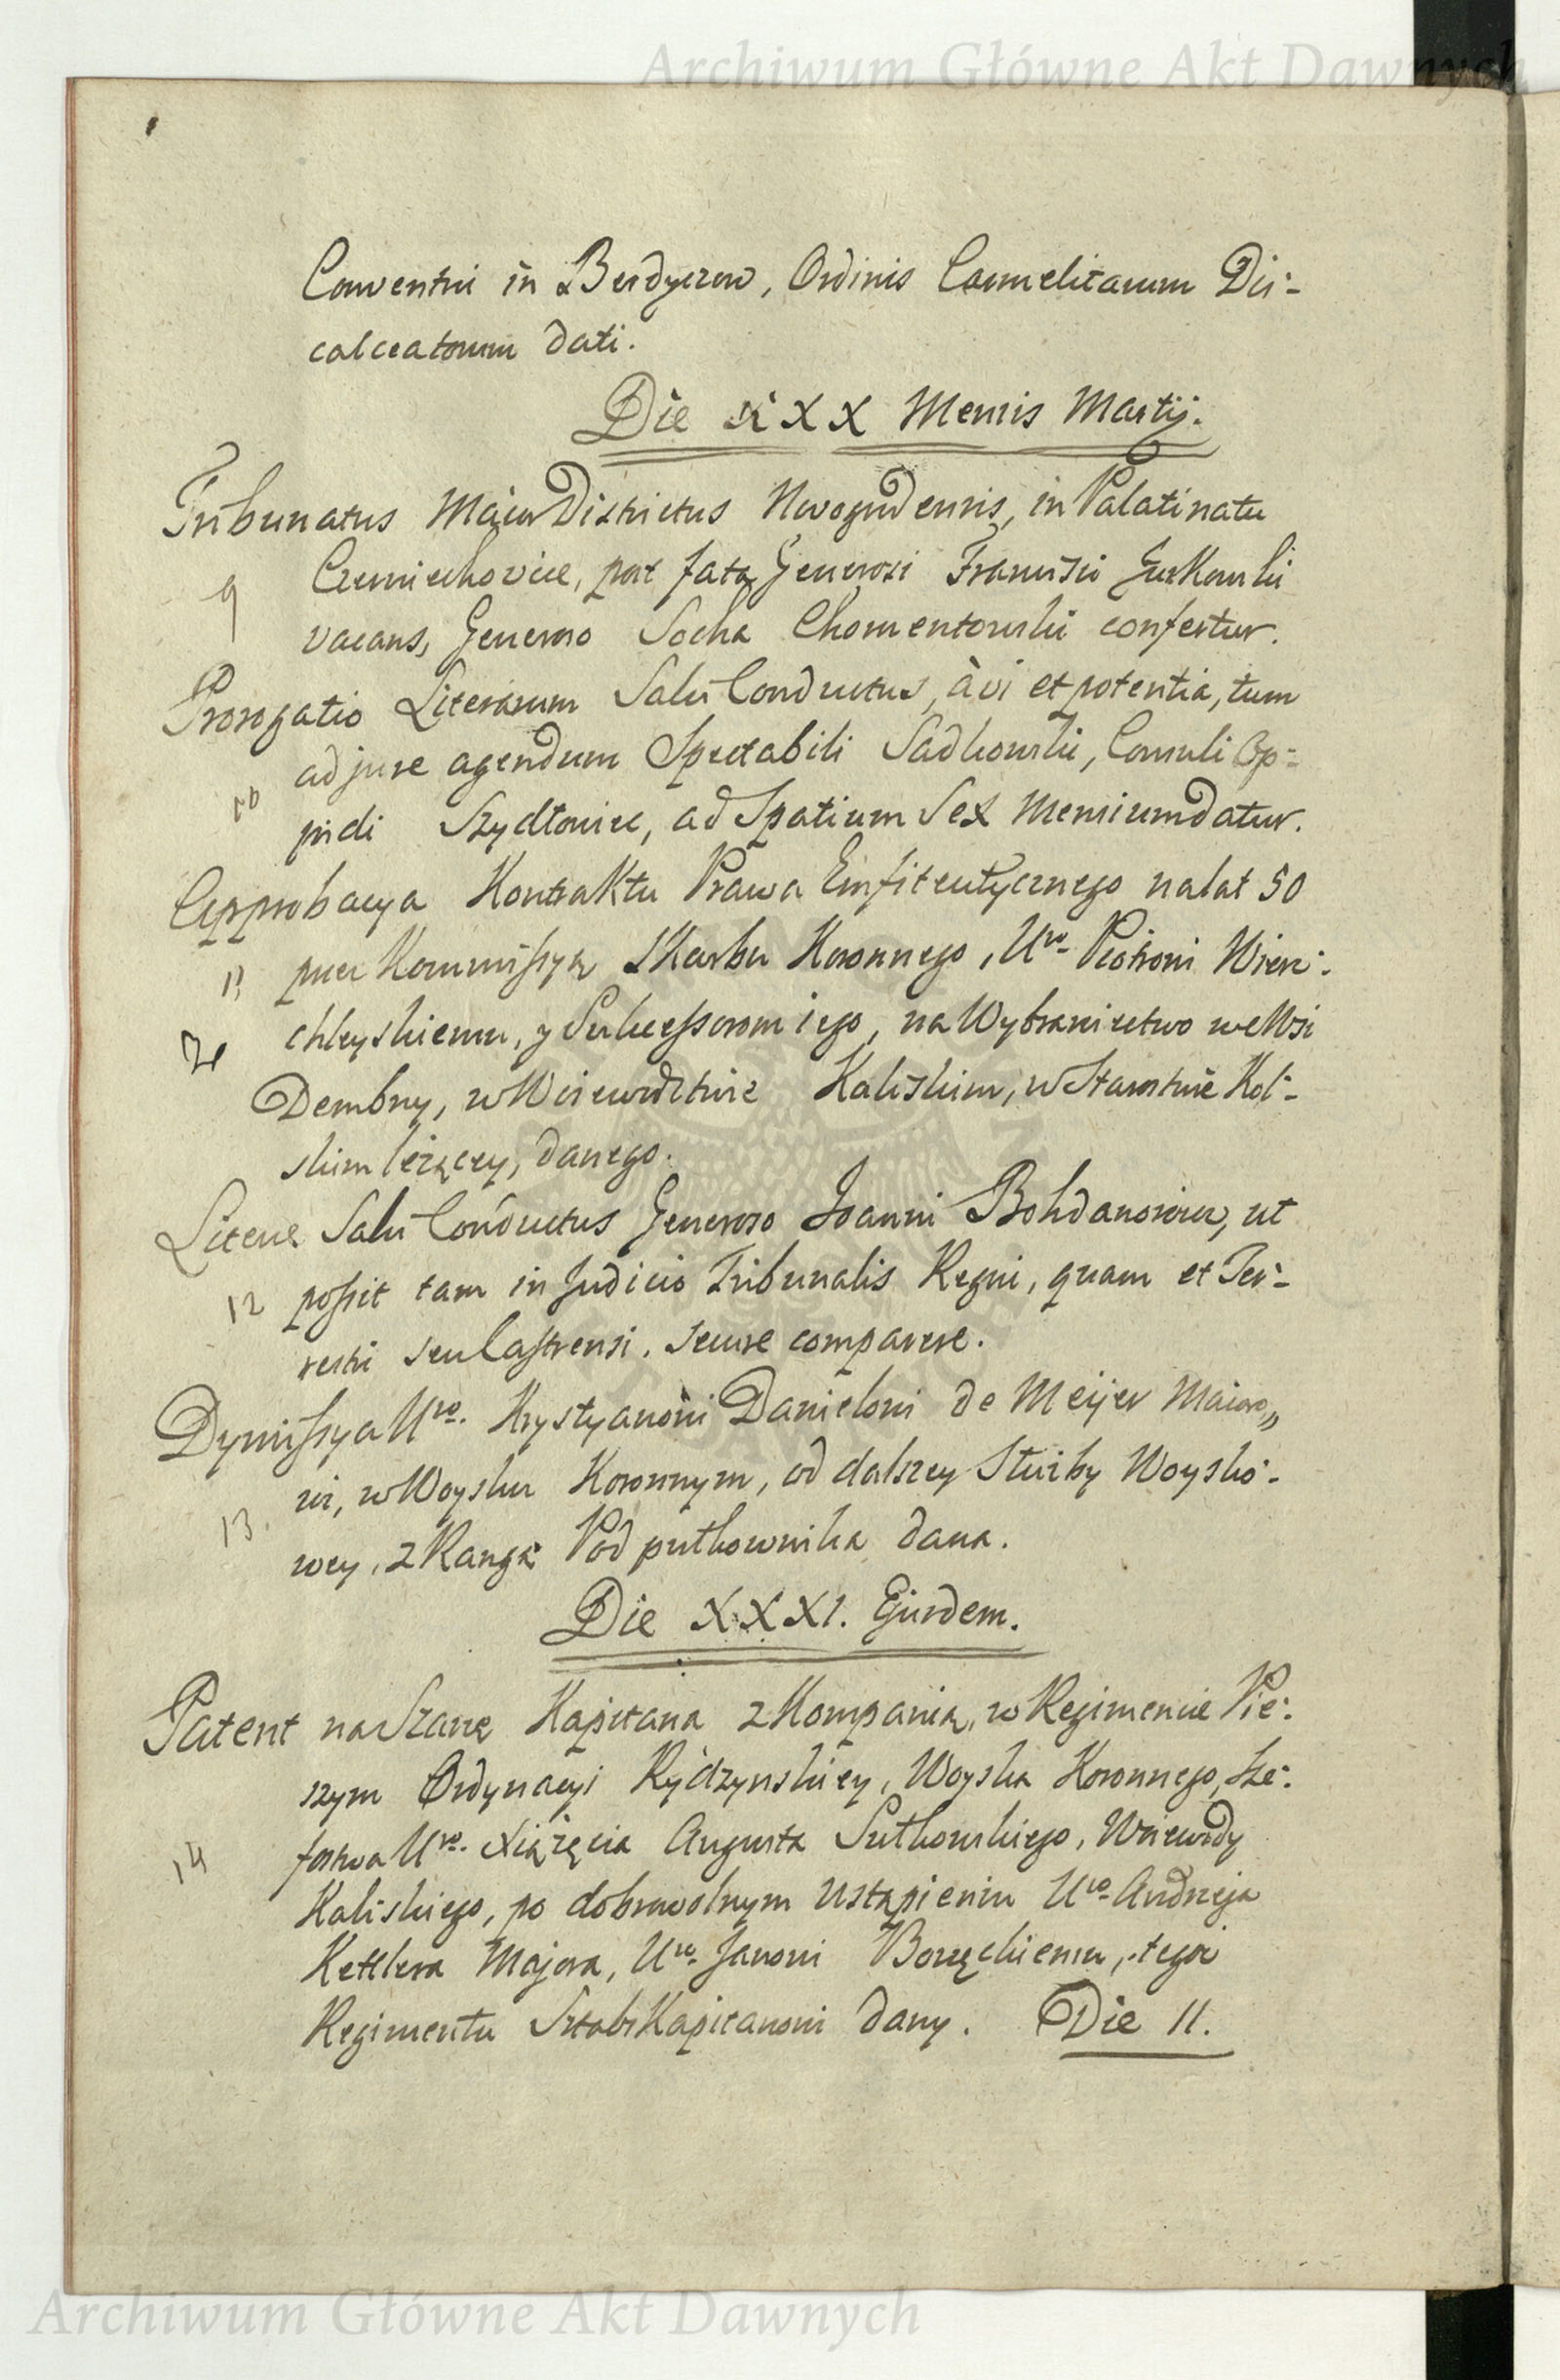 Archiwum Główne Akt Dawnych
Conventui in Berdyczow, Ordinis Carmelitarum Dis-
calceatorum dati.
Die XXX Mensis Martij.
Tribunatus Maior Districtus Novogrodensis, in Palatinatu
9 Czerniechoviae, post fata Generosi Francisci
vacans, Generoso Socha Chomentowski confertur.
Prorogatio Literarum Salvi Conductus, à vi et potentia, tum
ad jure agendum Spectabili Sadkowski, Consuli Op-
10 pidi Szydłowiec, ad Spatium Sex Mensium datur.
Approbacya Kontraktu Prawa Emfiteutycznego na lat 50
11 przez Kommissyą Skarbu Koronnego, Uro Piotrowi Wierz-
chleyskiemu, y Sukcessorom iego, na Wybraniectwo we Wsi
Dembny, w Woiewodztwie Kaliskim, w Starostwie Kol-
skim leżącey, danego.
Literae Salvi Conductus Generoso Joanni Bohdanowicz, ut
12 possit tam in Judicio Tribunalis Regni, quam et Ter-
restri seu Castrensi, secure comparere.
Dymissya Uro. Krystyanowi Danielowi de Meijer Maioro„
wi, w Woysku Koronnym, od dalszey Służby Woysko-
13. wey, z Rangą Podpułkownika dana.
Die XXXI. Ejusdem.
Patent na Szarżę Kapitana z Kompanią, w Regimencie Pie-
szym Ordynacyi Rydzynskiey, Woyska Koronnego, Sze-
14 fostwa Uro. Xiążęcia Augusta Sułkowskiego, Woiewody
Kaliskiego, po dobrowolnym Ustąpieniu Uro Andrzeja
Kettlera Majora, Uro Janowi Borzęckiemu, tegoż
Regimentu Sztabs Kapitanowi dany. Die II.
Archiwum Główne Akt Dawnych